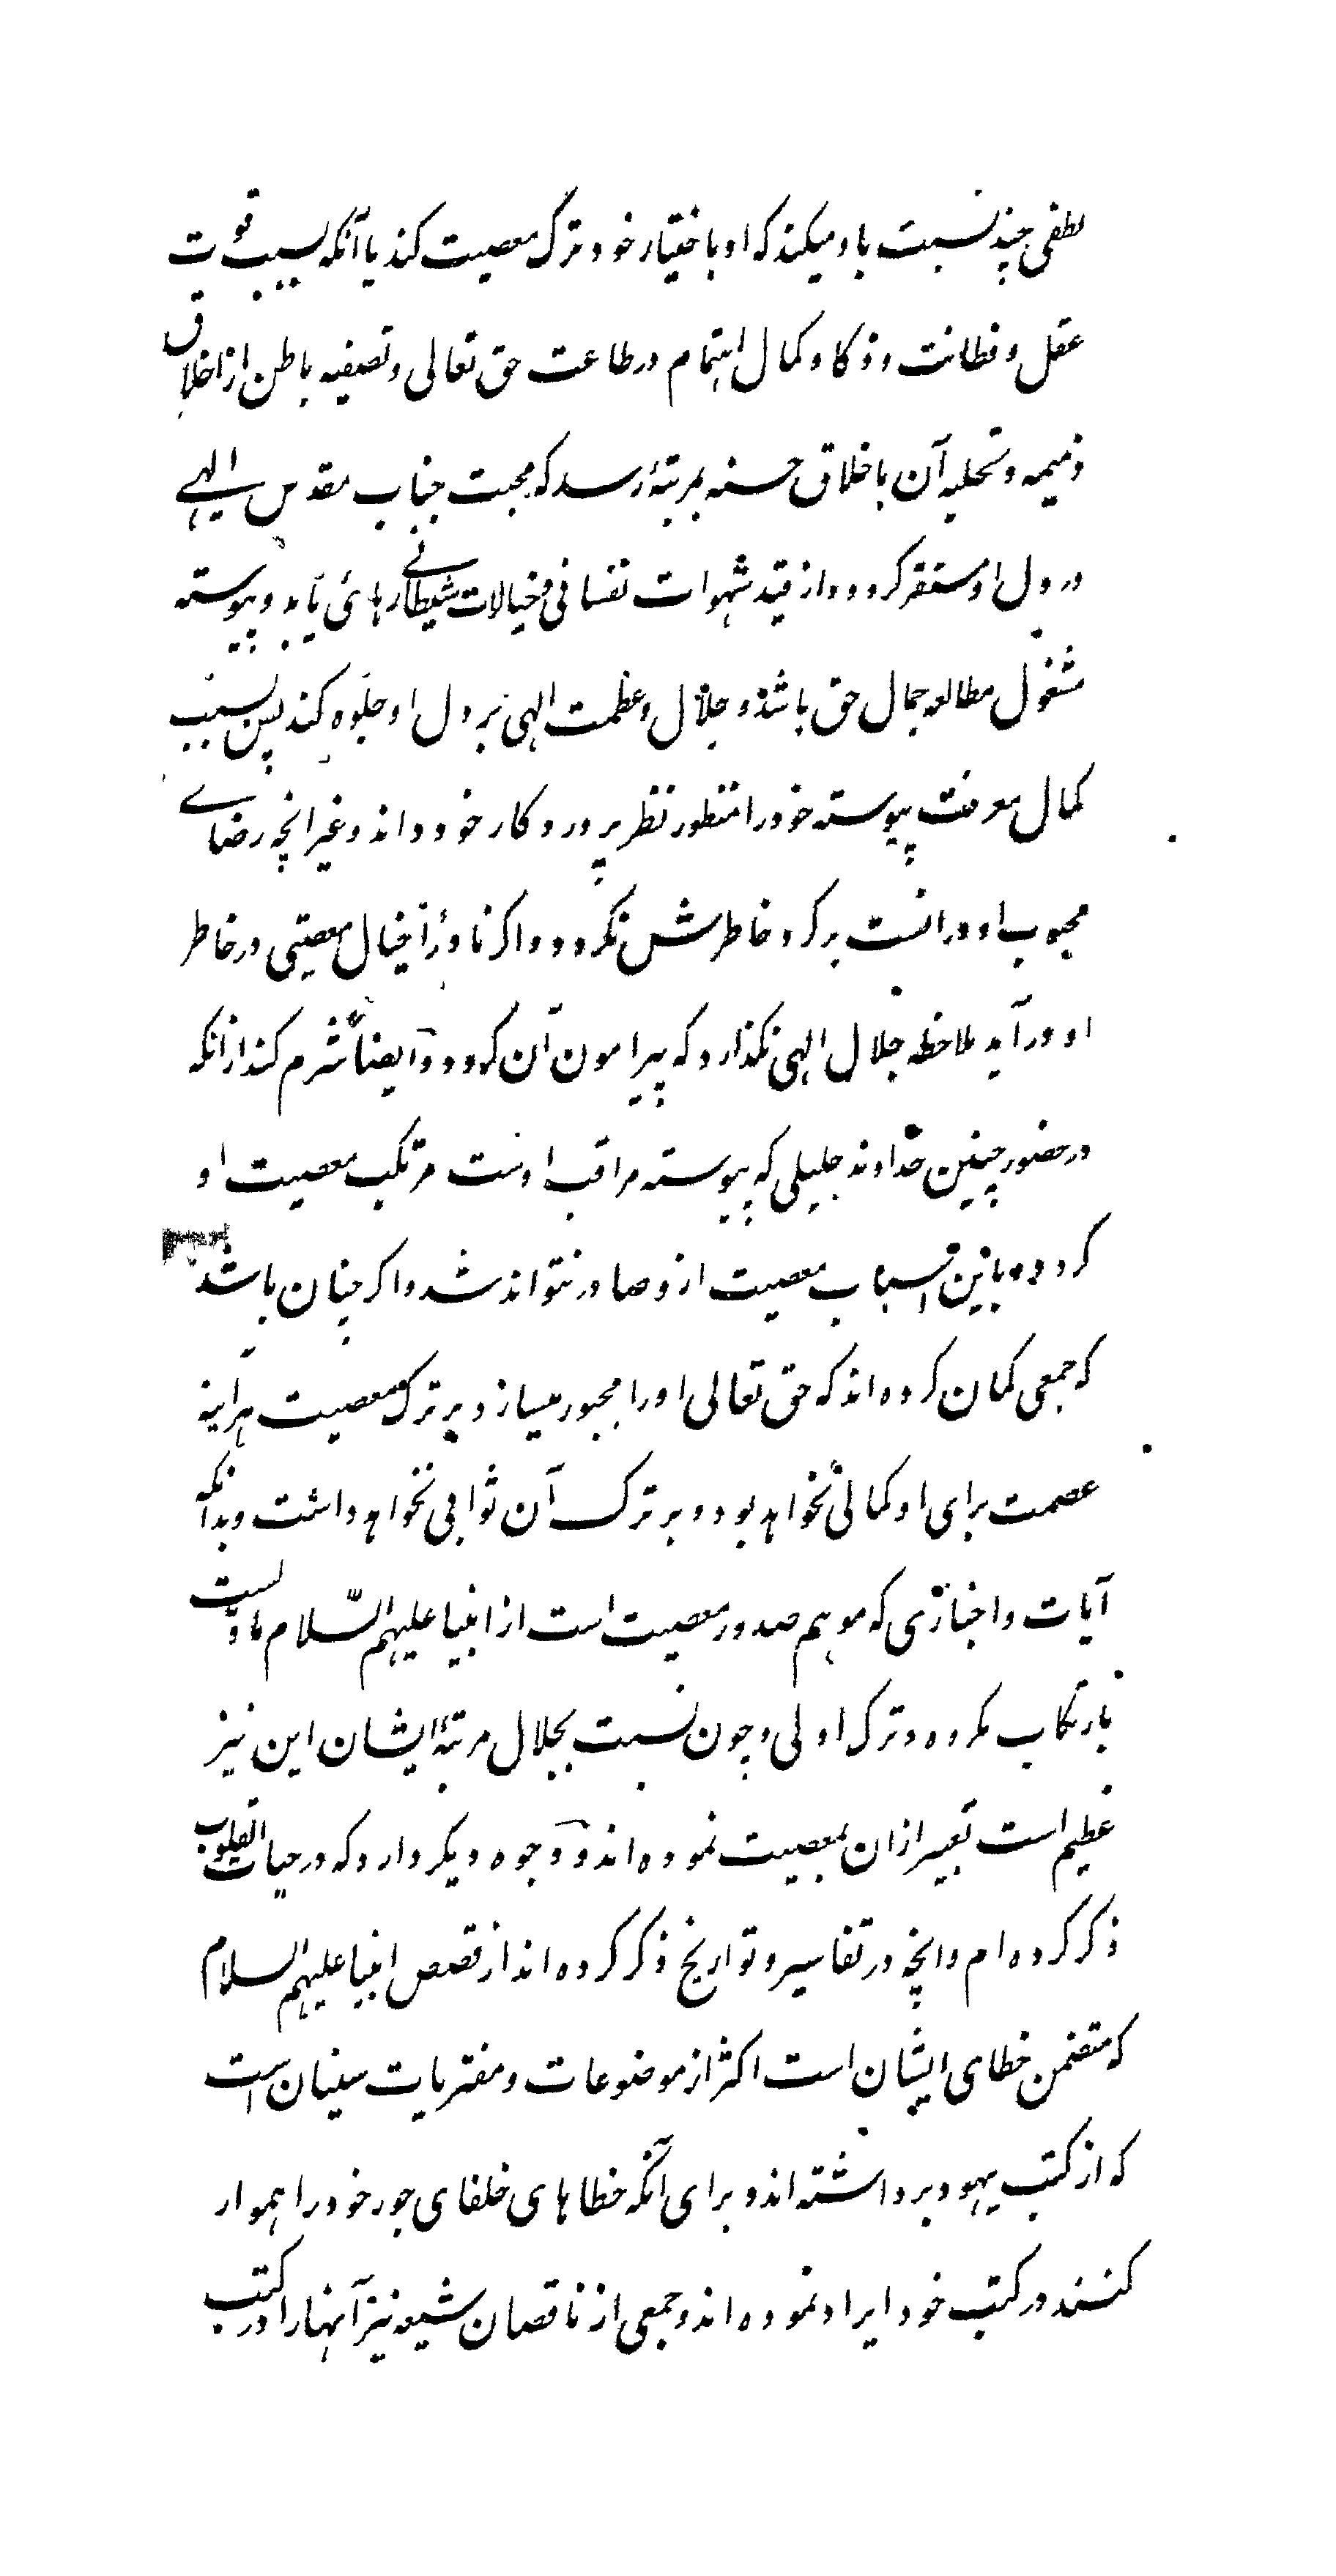 لطفی چند نسبت باو میکند که او باختیار خود ترک معصیت کند یا آنکه بسبب قوت
عقل و فطانت و ذکا و کمال اهتمام در طاعت حق تعالی و تصفیه باطن از اخلاق
ذمیمه و تحلیه آن باخلاق حسنه بمرتبهٔ رسد که محبت جناب مقدس الهی
در دل او مستقر کردد و از قید شهوات نفسانی و خیالات شیطانی رهائی یابد و پیوسته
مشغول مطالعه جمال حق باشد و جلال و عظمت الهی بر دل او جلوه کند پس بسبب
کمال معرفت پیوسته خود را منظور نظر پروردکار خود داند و غیر انچه رضای
محبوب او در انست بر کرد خاطرش نکردد و اکر نادرًا خیال معصیتی در خاطر
او در آید ملاحظه جلال الهی نکذارد که پیرامون آن کردد و ایضاً شرم کند از انکه
در حضور چنین خداوند جلیلی که پیوسته مراقب اوست مرتکب معصیت او
کردد باین اسباب معصیت ازو صادر نتواند شد و اکر چنان باشد
که جمعی کمان کرده اند که حق تعالی او را مجبور میسازد بر ترک معصیت هرآینه
عصمت برای او کمالی نخواهد بود و بر ترک آن ثوابی نخواهد داشت و بدانکه
آیات و اخباری که موهم صدور معصیت است از انبیا علیهم السّلام ماوّلست
بارتکاب مکروه و ترک اولی و چون نسبت بجلال مرتبهٔ ایشان این نیز
عظیم است تعبیر ازان بمعصیت نموده اند و وجوه دیکر دارد که در حیات القلوب
ذکر کرده ام و انچه در تفاسیر و تواریخ ذکر کرده اند از قصص انبیا علیهم السلام
که متضمن خطای ایشان است اکثر از موضوعات و مفتریات سنیان است
که از کتب یهود برداشته اند و برای آنکه خطاهای خلفای جور خود را هموار
کنند در کتب خود ایراد نموده اند و جمعی از ناقصان شیعه نیز آنها را در کتب